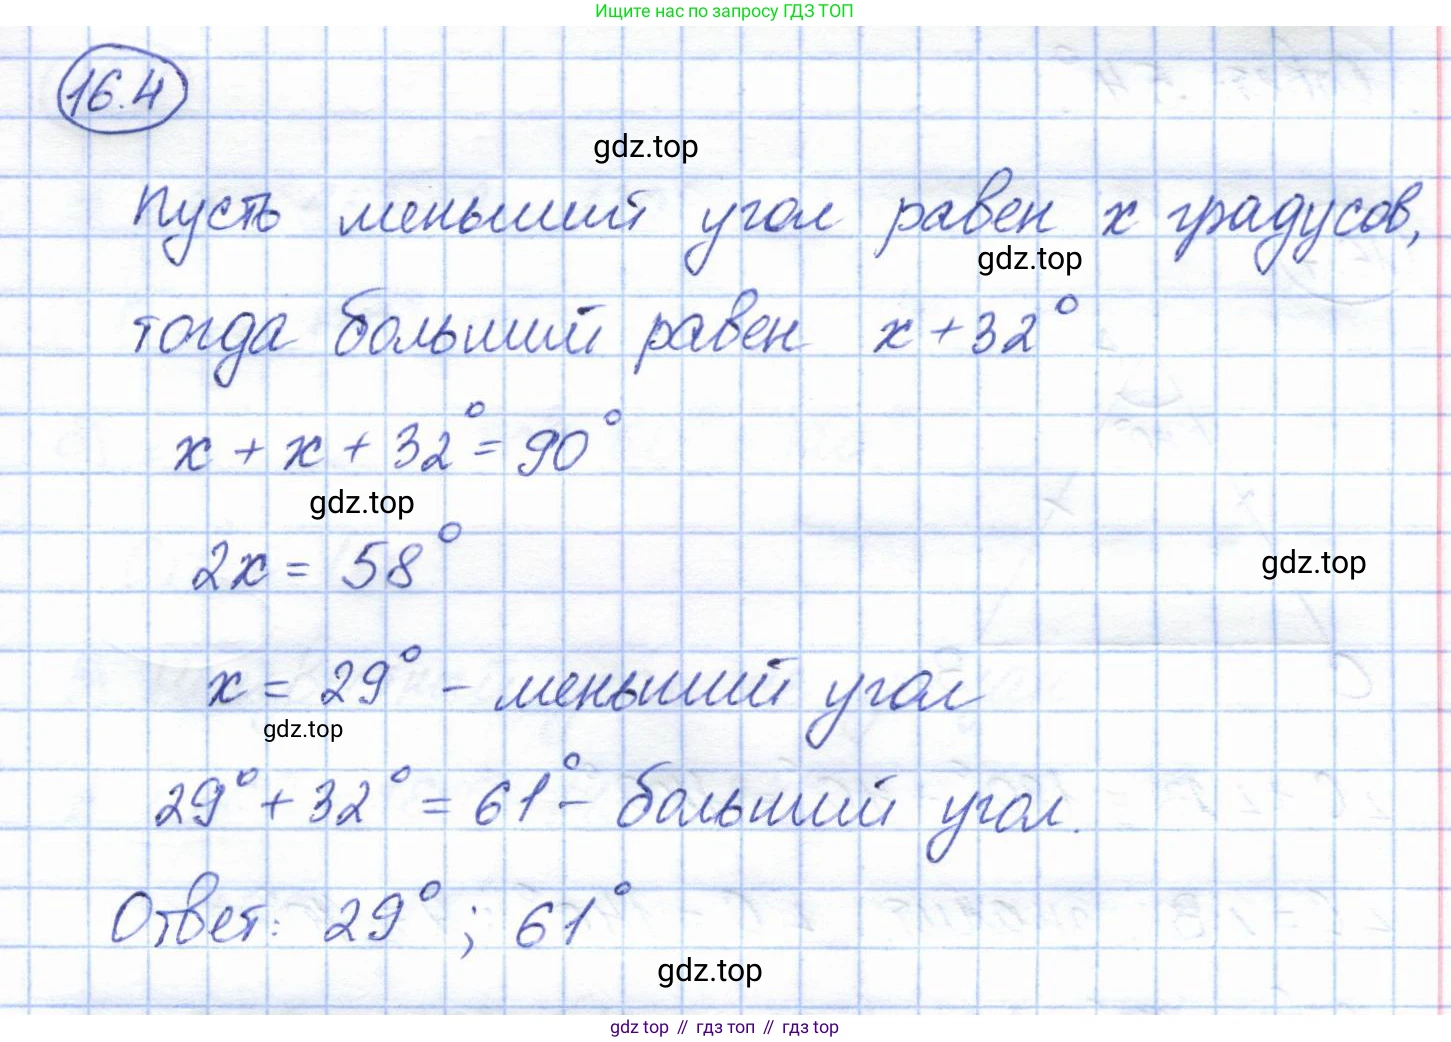 Ищите нас по запросу ГДЗ ТОП
16.4
gdz.top
Пусть меньший угол равен x градусов,
gdz.top
тогда больший равен x + 32°
x + x + 32° = 90°
gdz.top
2x = 58°
gdz.top
x = 29° - меньший угол
gdz.top
29° + 32° = 61° - больший угол.
Ответ: 29° ; 61°
gdz.top
gdz top // гдз топ // гдз top